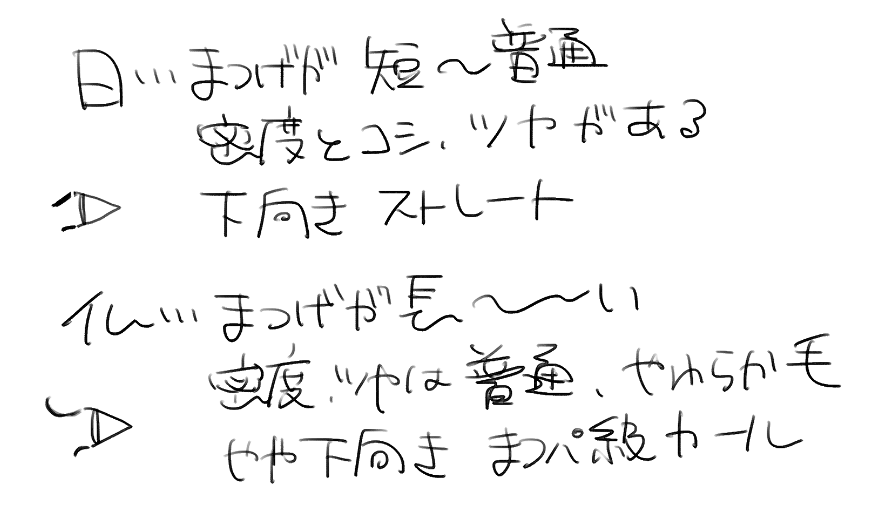 日…まつげが 短～普通
密度とコシ、ツヤがある
下向き ストレート
仏…まつげが長～～い
密度、ツヤは普通、やわらか毛
やや下向き まつパ級カール